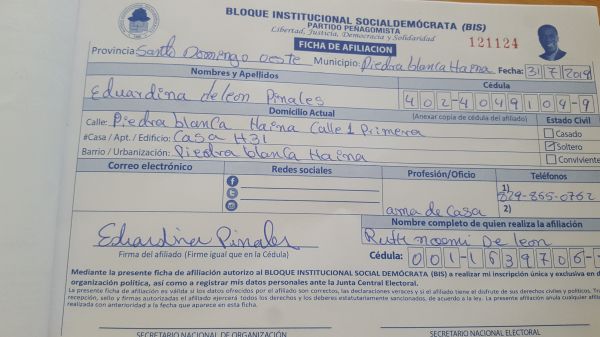 BLOQUE INSTITUCIONAL SOCIALDEMÓCRATA (BIS)
PARTIDO PEÑAGOMISTA
Libertad, Justicia, Democracia y Solidaridad
FICHA DE AFILIACION
121124
Provincia: Santo Domingo oeste Municipio: Piedra blanca Haina Fecha: 31/7/2018
Nombres y Apellidos
Cédula
Eduardina de leon Pinales
402-4049109-9
Domicilio Actual
(Anexar copia de cédula del afiliado)
Estado Civil
Calle: Piedra blanca Haina Calle 1 Primera
Casado
#Casa / Apt. / Edificio: Casa H31
Soltero
Barrio / Urbanización: Piedra blanca Haina
Conviviente
Correo electrónico
Redes sociales
Profesión/Oficio
Teléfonos
1) 829-855-0762
2)
ama de Casa
Eduardina Pinales
Firma del afiliado (Firme igual que en la Cédula)
Nombre completo de quien realiza la afiliación
Ruth noemi De leon
Cédula: 001-1639706-
Mediante la presente ficha de afiliación autorizo al BLOQUE INSTITUCIONAL SOCIAL DEMÓCRATA (BIS) a realizar mi inscripción única y exclusiva en
organización política, así como a registrar mis datos personales ante la Junta Central Electoral.
La presente ficha de afiliación es válida si los datos ofrecidos por el afiliado son correctos, las declaraciones veraces y si el afiliado tiene el disfrute de sus derechos civiles y políticos.
recepción, sello y firmas autorizadas el afiliado ejercerá todos los derechos y los deberes estatutariamente sancionados, de acuerdo a la ley. La presente afiliación anula cualquier
realizada con anterioridad a la fecha que aparece en esta ficha.
SECRETARIO NACIONAL DE ORGANIZACIÓN
SECRETARIO NACIONAL ELECTORAL